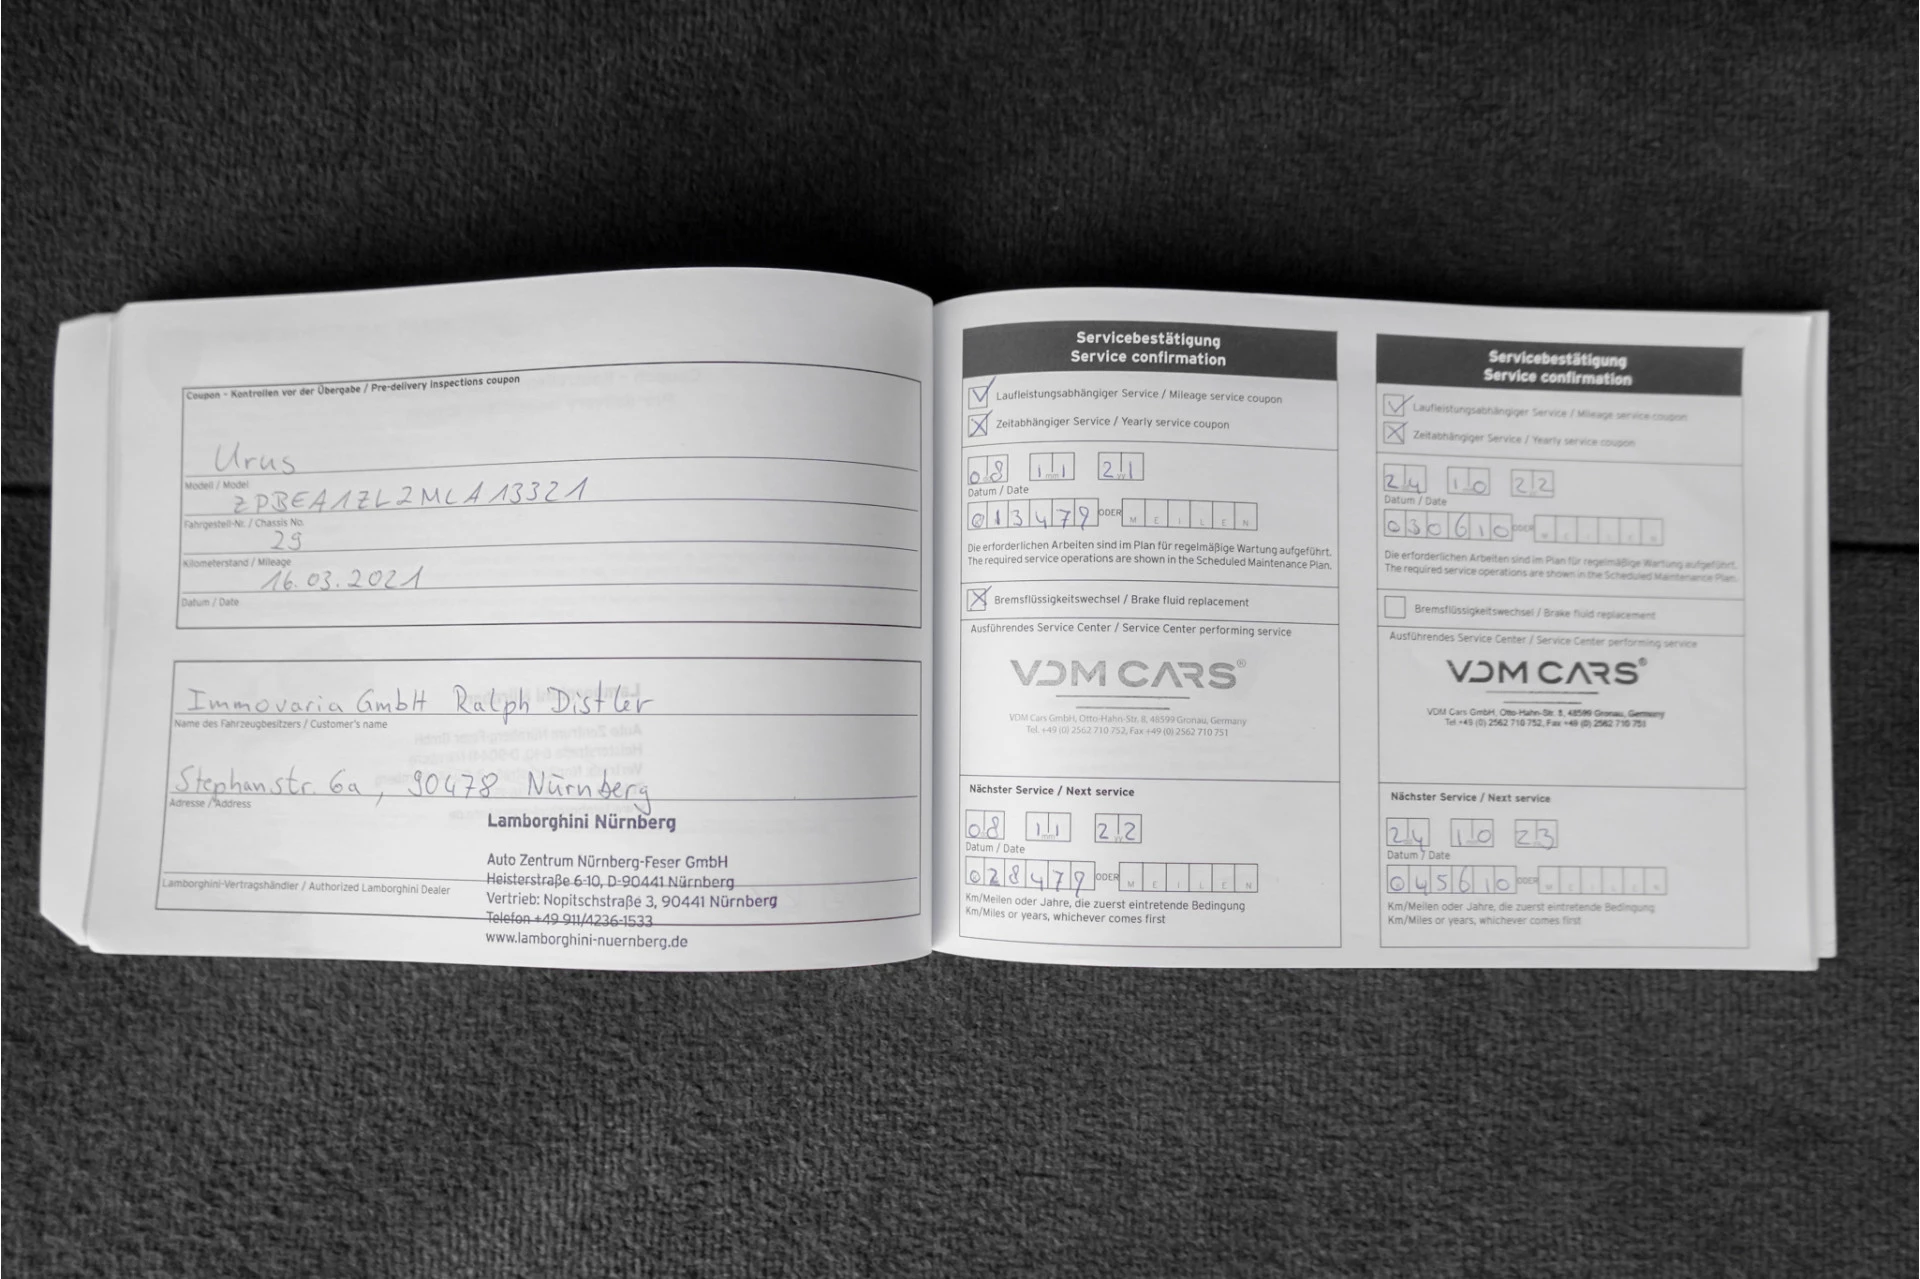 Coupon - Kontrollen vor der Übergabe / Pre-delivery inspections coupon
Urus
Modell / Model
ZPBEA1ZL2MLA13321
Fahrgestell-Nr. / Chassis No.
29
Kilometerstand / Mileage
16.03.2021
Datum / Date
Immovaria GmbH Ralph Distler
Name des Fahrzeugbesitzers / Customer's name
Stephanstr. 6a, 90478 Nürnberg
Adresse / Address
Lamborghini Nürnberg
Auto Zentrum Nürnberg-Feser GmbH
Heisterstraße 6-10, D-90441 Nürnberg
Lamborghini-Vertragshändler / Authorized Lamborghini Dealer
Vertrieb: Nopitschstraße 3, 90441 Nürnberg
Telefon +49 911/4236-1533
www.lamborghini-nuernberg.de
Servicebestätigung
Service confirmation
Laufleistungsabhängiger Service / Mileage service coupon
Zeitabhängiger Service / Yearly service coupon
08 11 21
Datum / Date
013479 ODER MEILEN
Die erforderlichen Arbeiten sind im Plan für regelmäßige Wartung aufgeführt.
The required service operations are shown in the Scheduled Maintenance Plan.
Bremsflüssigkeitswechsel / Brake fluid replacement
Ausführendes Service Center / Service Center performing service
VDM CARS®
VDM Cars GmbH, Otto-Hahn-Str. 8, 48599 Gronau, Germany
Tel. +49 (0) 2562 710 752, Fax +49 (0) 2562 710 751
Nächster Service / Next service
08 11 22
Datum / Date
028479 ODER MEILEN
Km/Meilen oder Jahre, die zuerst eintretende Bedingung
Km/Miles or years, whichever comes first
Servicebestätigung
Service confirmation
Laufleistungsabhängiger Service / Mileage service coupon
Zeitabhängiger Service / Yearly service coupon
24 10 22
Datum / Date
030610 ODER MEILEN
Die erforderlichen Arbeiten sind im Plan für regelmäßige Wartung aufgeführt.
The required service operations are shown in the Scheduled Maintenance Plan.
Bremsflüssigkeitswechsel / Brake fluid replacement
Ausführendes Service Center / Service Center performing service
VDM CARS®
VDM Cars GmbH, Otto-Hahn-Str. 8, 48599 Gronau, Germany
Tel +49 (0) 2562 710 752, Fax +49 (0) 2562 710 751
Nächster Service / Next service
24 10 23
Datum / Date
045610 ODER MEILEN
Km/Meilen oder Jahre, die zuerst eintretende Bedingung
Km/Miles or years, whichever comes first